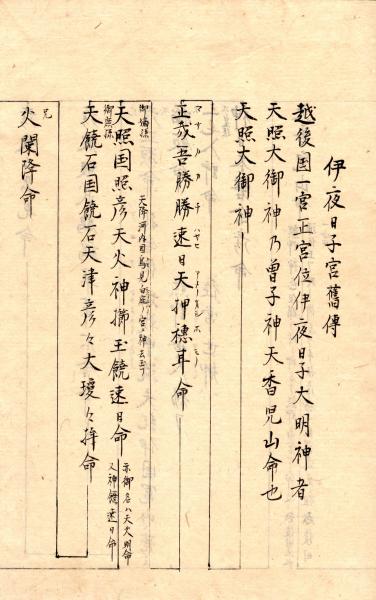 伊夜日子宮舊傳
越後国一宮正宮位伊夜日子大明神者
天照大御神乃曽子神天香児山命也
天照大御神
正哉吾勝勝速日天押穂耳命
マサカアカチハヤヒアメノオシホミノ
御嫡孫
天降河内国
天照国照彦天火神擲玉饒速日命
亦御名ハ天火明命
又神饒速日命
御庶孫
天饒石国饒石天津彦々火瓊々杵命
兄
火闌降命